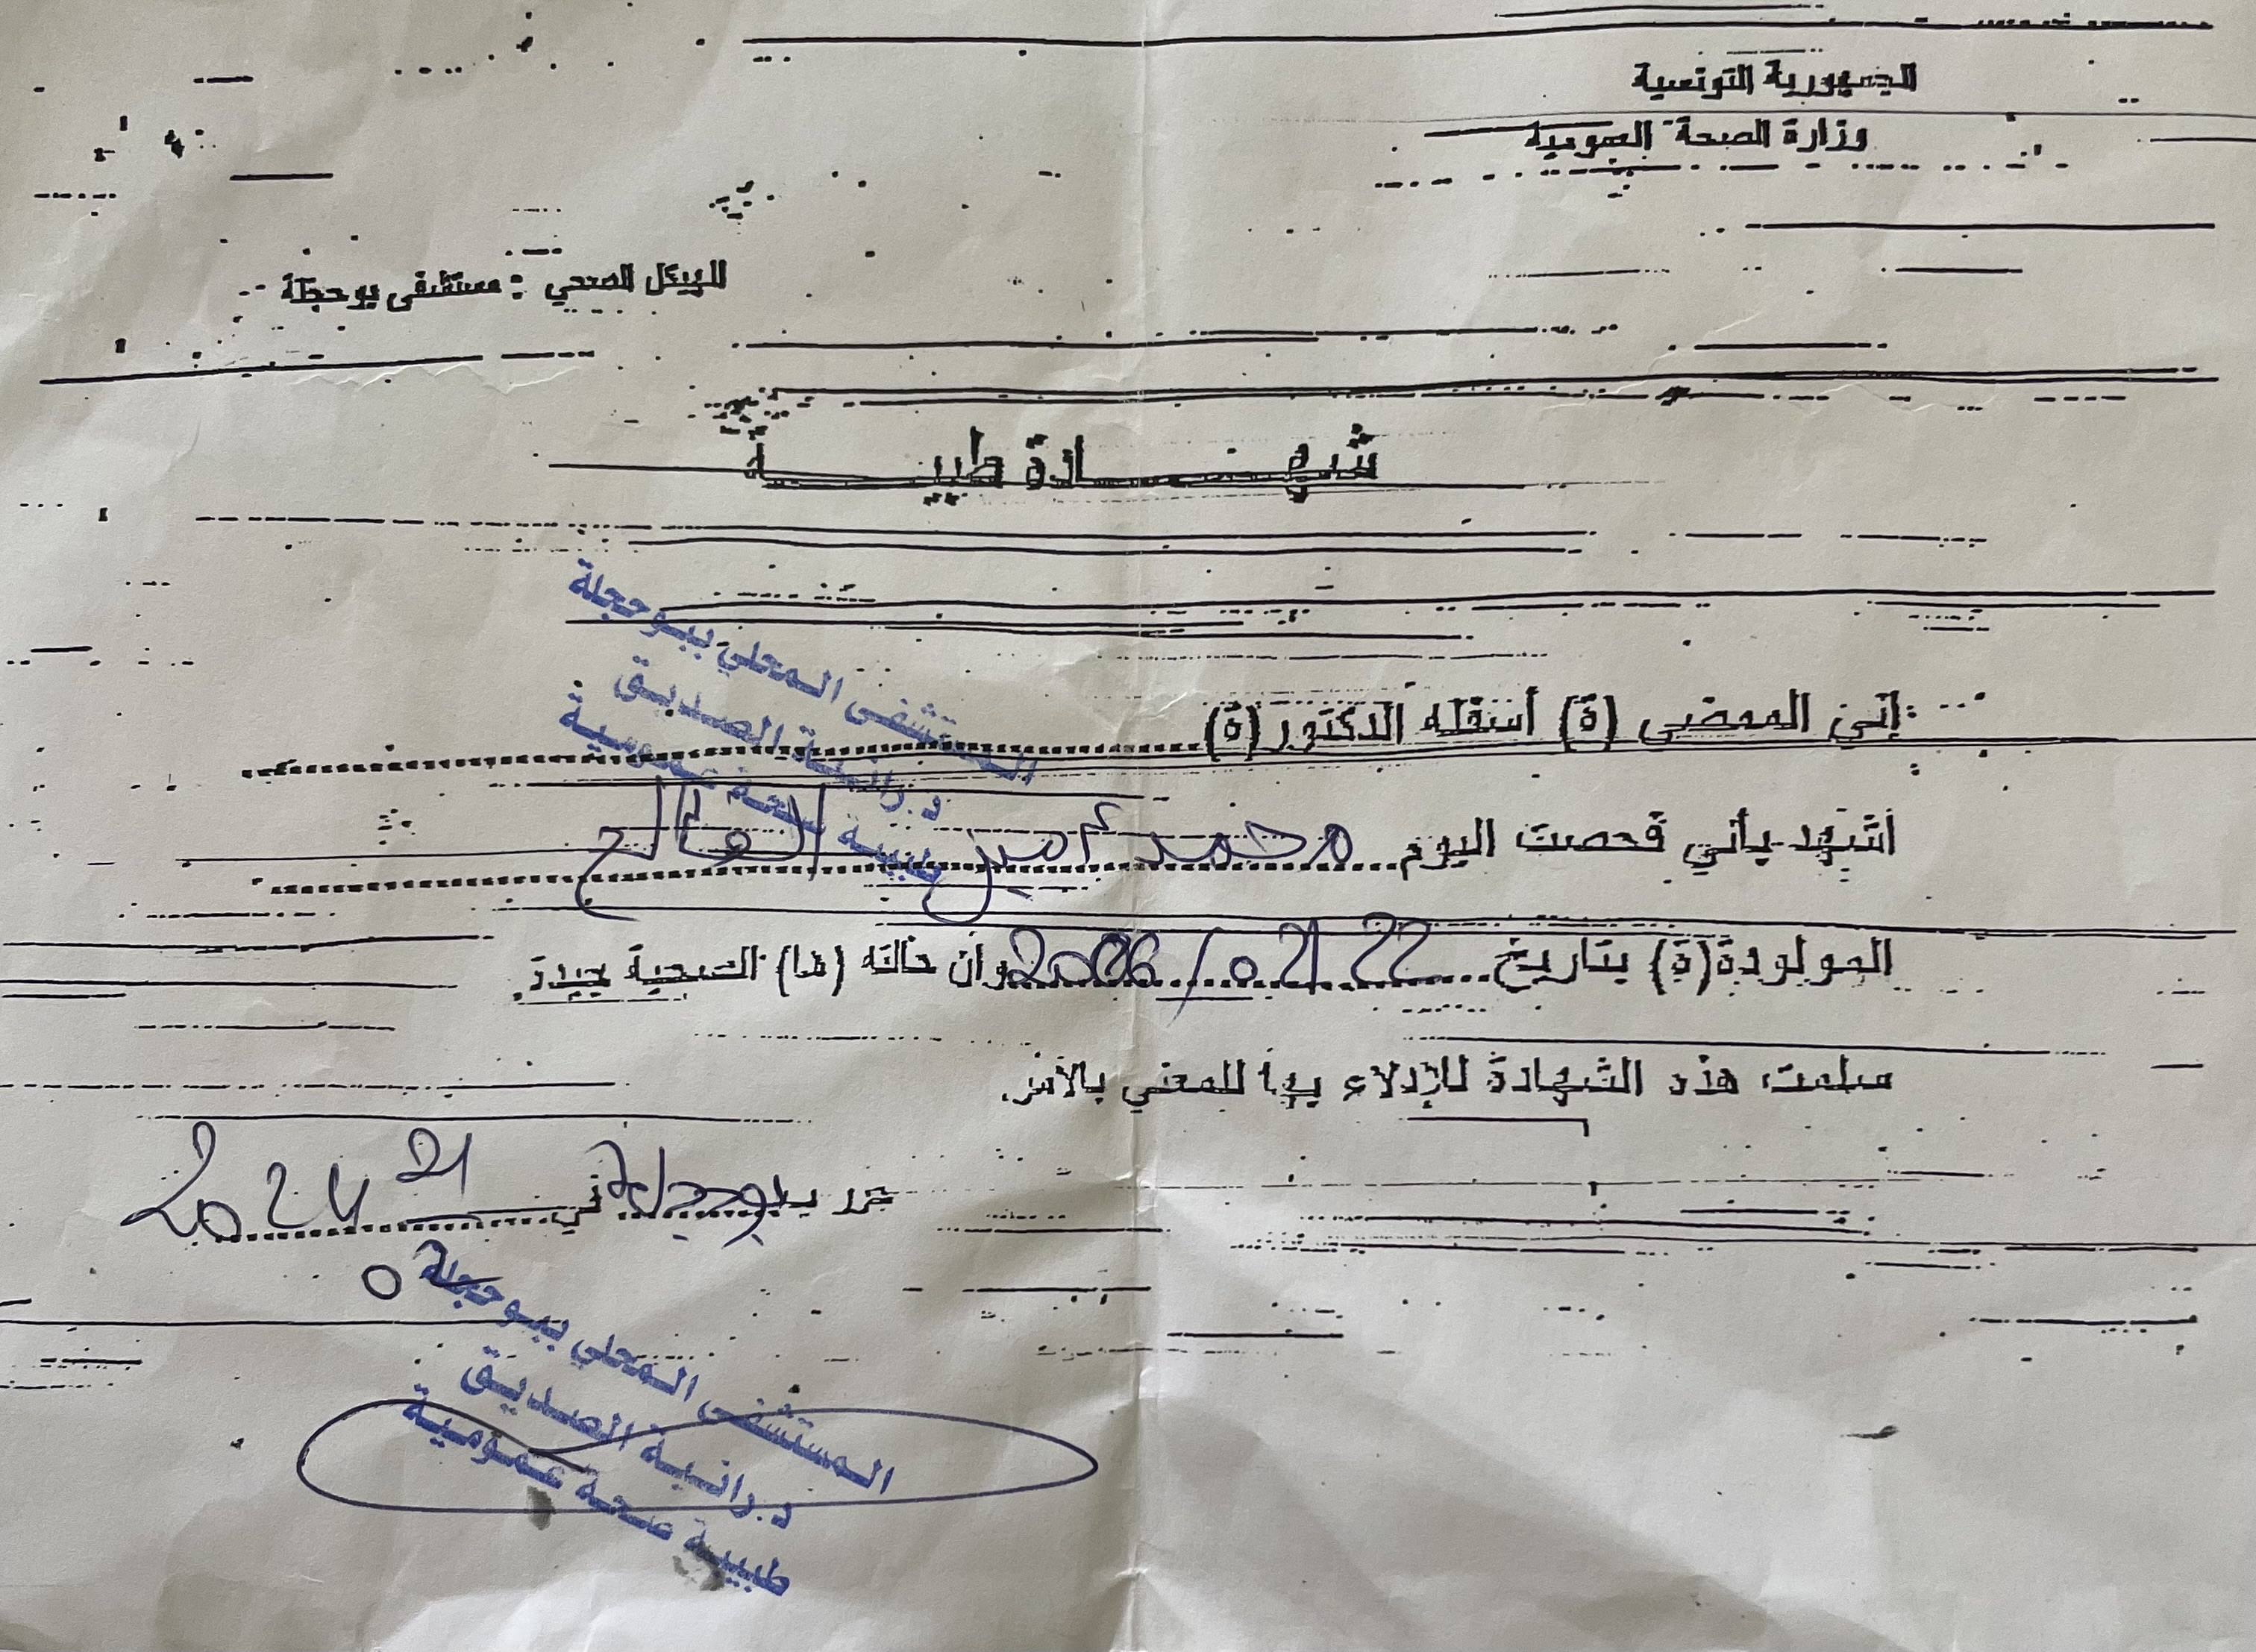 الجمهورية التونسية
وزارة الصحة العمومية
الهيكل الصحي : مستشفى بوحجلة
شهـــــادة طبيـــــة
المستشفى المحلي ببوحجلة
د.رانية الصديق
طبيبة صحة عمومية
إني الممضي (ة) أسفله الدكتور (ة)
أشهد بأني فحصت اليوم محمد أمين
المولودة(ة) بتاريخ 22 وان حالته (ها) الصحية جيدة.
سلمت هذه الشهادة للإدلاء بها للمعني بالأمر.
حرر ببوحجلة في 21
2024
المستشفى المحلي ببوحجلة
د.رانية الصديق
طبيبة صحة عمومية